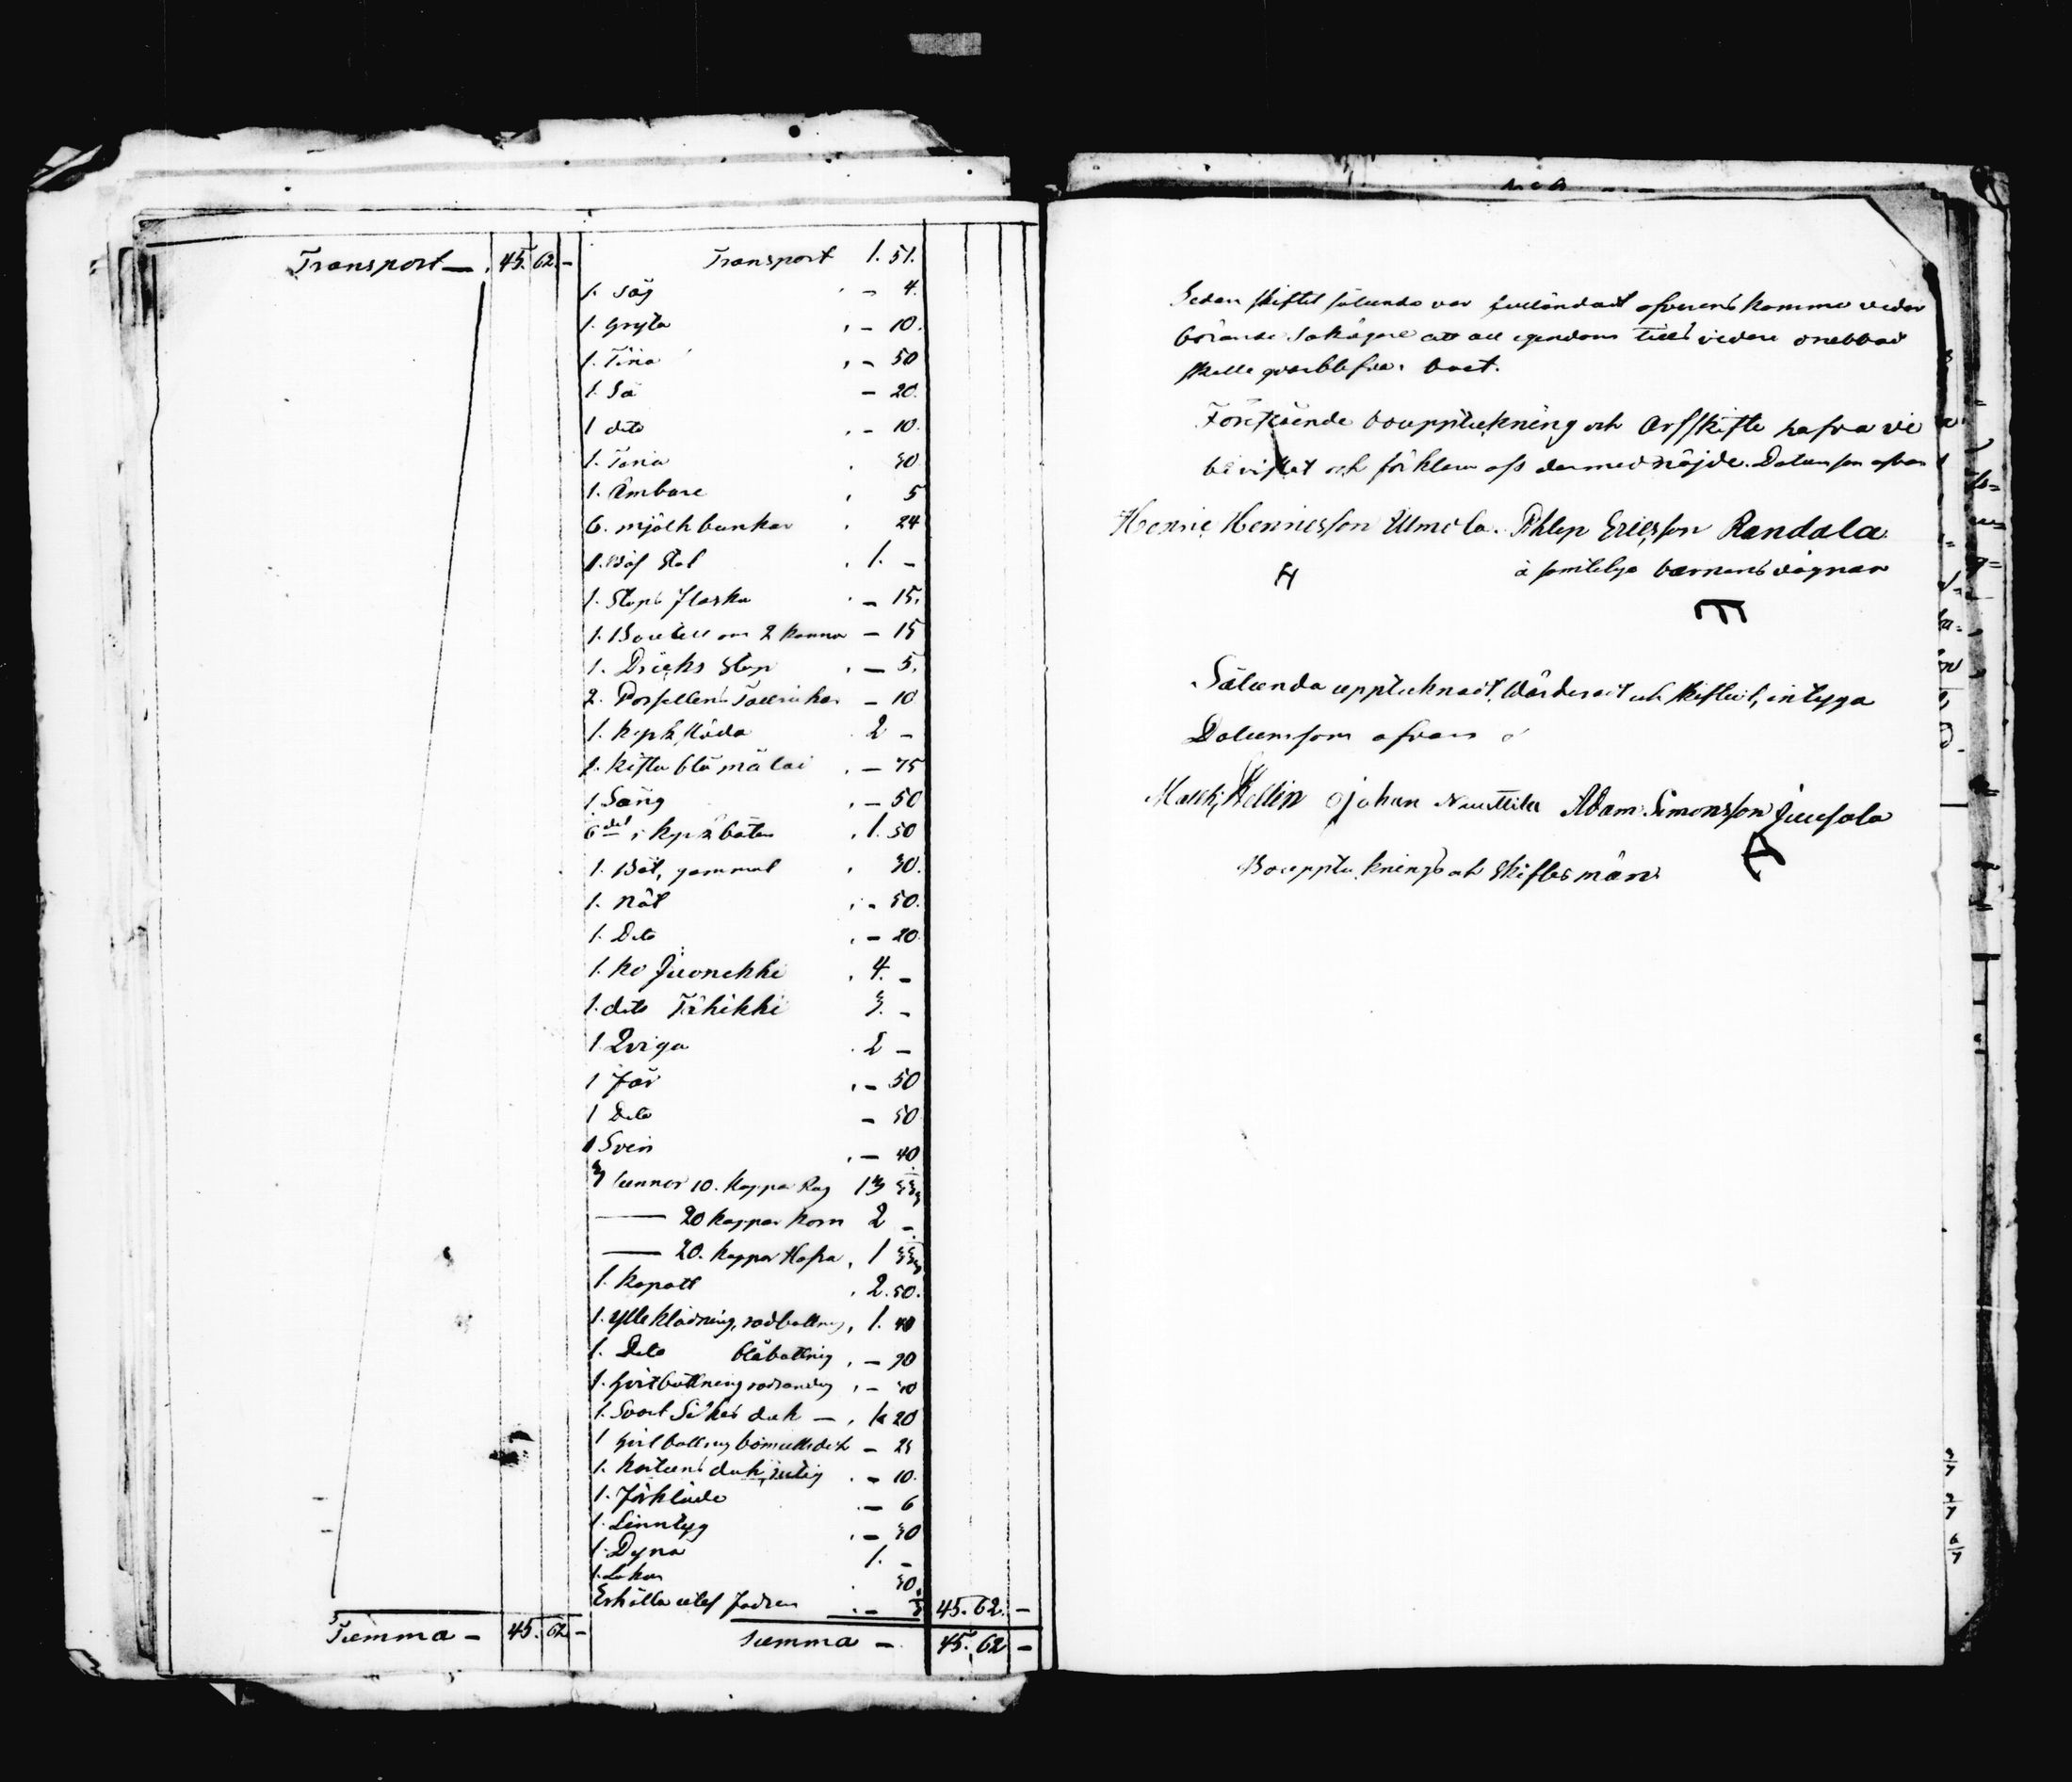 Transport — 45. 62. —
Transport 1. 51.
1. Såg — 4.
1. Gryta — 10.
1. Tina — 50
1. Så — 20.
1 dito — 10.
1. Tina 30
1. Ämbare 5
6. mjölkbunkar 24
1. 1. —
1. Stops flaska — 15.
1. Boutell om 2 kanna — 15
1. Dricks stop — 5.
2. Porsellens Tallrikar — 10
1. 2 —
1. Kista blå målad — 75
1 Säng — 50
6del i båten 1. 50
1. Båt, gammal 30.
1. Nöt — 50.
1. Dito — 20.
1. Ko Juonikki 4. —
1. dito Tähikki 3. —
1 Qviga 2 —
1 Får — 50
1 Dito — 50
1 Svin — 40
3 tunnor 10. kappar Råg 13 33
— 20 kappar Korn 2 —
— 20. kappar Hafra, 1 33
1. Kapott 2. 50.
1. Ylle klädning, rödbottnig, 1. 40
1. Dito blåbottnig — 90
1. hvitbottning — 30
1. Svart Silkes duk — 1. 20
1 hvitbottnig bomullsduk — 25
1. Kartuns duk, — 10.
1. Förkläde — 6
1. Linntyg — 30
1. Dyna 1. —
1. Lakan 30.
Erhålla utaf fadren — 45. 62. —
Summa — 45. 62 —
Summa — 45. 62 —
Sedan skiftet sålunda var fulländadt öfverens kommo veder
börande Sakägare att all egendom tills vidare orubbad
skulle qvarblifva i boet.
Förestående bouppteckning och Arfskifte hafva vi
bevistat och förklara oss dermed nöjde. Datum som ofvan
Henric Henricsson Ulmola. Philip Ericsson Randala
H
å samtelga barnens vägnar
E
Sålunda upptecknadt, Wärderadt och skiftadt, intyga
Datum som ofvan
Matth, Kellin Johan Nuuttila Adam Simonsson Juusola
A
Bouppteknings och Skiftes män.